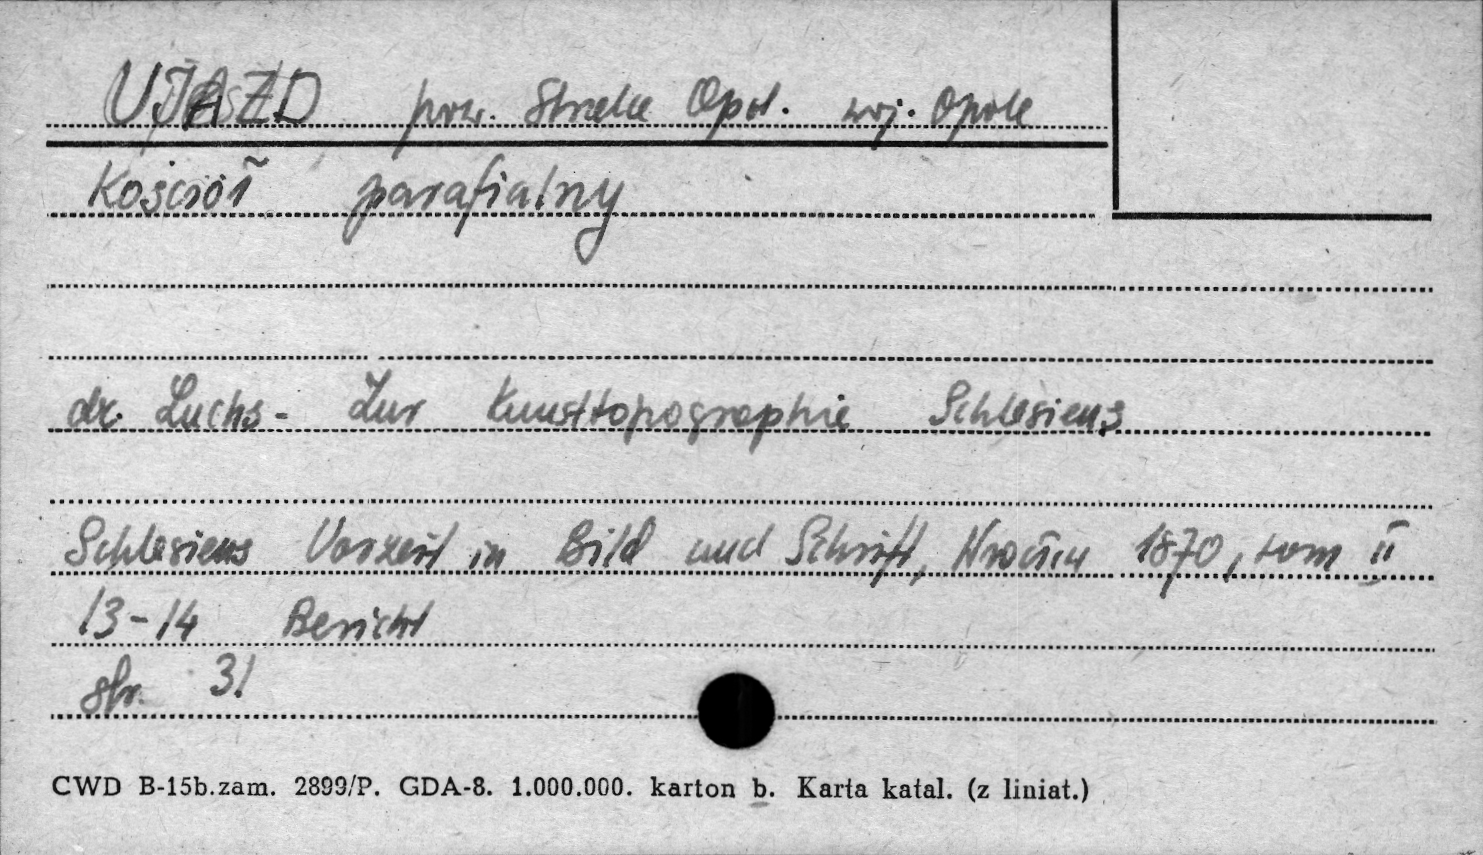 UJAZD pow. Strzelce Opol. woj. Opole
Kościół parafialny
dr. Luchs - Zur Kunsttopographie Schlesiens
Schlesiens Vorzeit in Bild und Schrift, Wrocław 1870, tom II
13-14 Bericht
str. 31
CWD B-15b.zam. 2899/P. GDA-8. 1.000.000. karton b. Karta katal. (z liniat.)